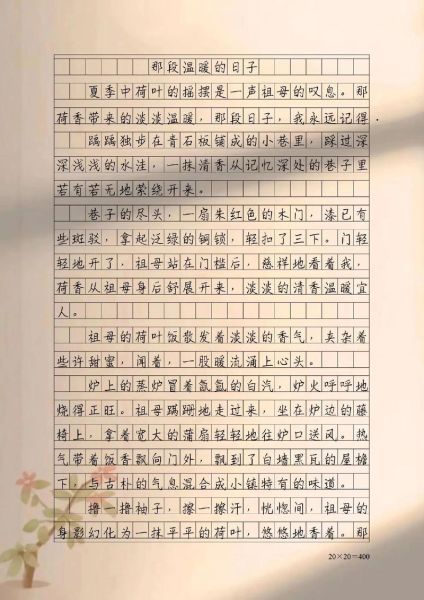 那段温暖的日子
夏季中荷叶的摇摆是一声祖母的叹息。那
荷香带来的淡淡温暖，那段日子，我永远记得.
踽踽独步在青石板铺成的小巷里，踩过深
深浅浅的水洼，一抹清香从记忆深处的巷子里
若有若无地萦绕开来。
巷子的尽头，一扇朱红色的木门，漆已有
些斑驳，拿起泛绿的铜锁，轻扣了三下。门轻
轻地开了，祖母站在门槛后，慈祥地看着我，
荷香从祖母身后舒展开来，淡淡的清香温暖宜
人。
祖母的荷叶饭散发着淡淡的香气，夹杂着
些许甜蜜，闻着，一股暖流涌上心头。
炉上的蒸炉冒着氤氲的白汽，炉火呼呼地
烧得正旺。祖母蹒跚地走过来，坐在炉边的藤
椅上，拿着宽大的蒲扇轻轻地往炉口送风。热
气带着饭香飘向门外，飘到了白墙黑瓦的屋檐
下，与古朴的气息混合成小镇特有的味道。
撸一撸袖子，擦一擦汗，恍惚间，祖母的
身影幻化为一抹平平的荷叶，悠悠地香着。那
20×20=400